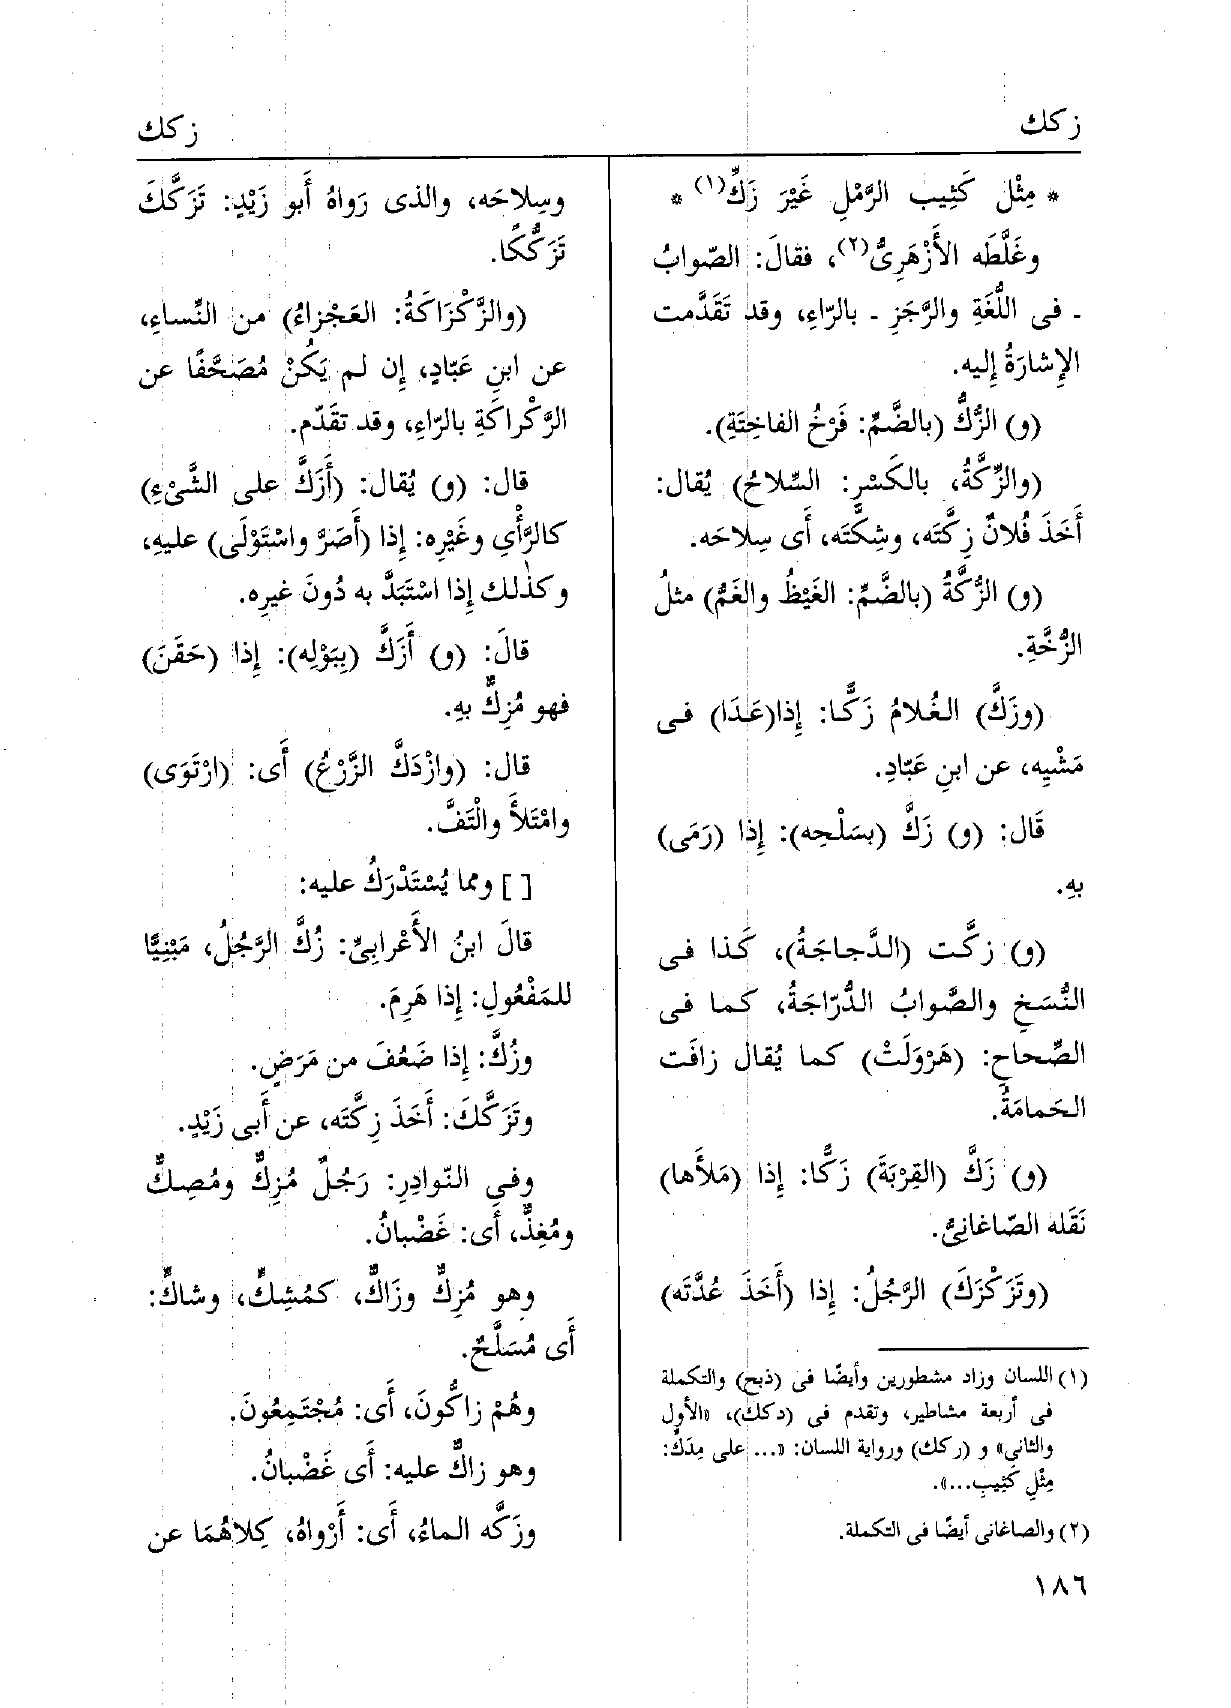 زكك
زكك
* مِثْل كَثِيب الرَّمْلِ غَيْرَ زَكِّ(١) *
وغَلَّطَه الأَزْهَرِىُّ(٢)، فقالَ: الصّوابُ
- فى اللُّغَةِ والرَّجَزِ - بالرّاءِ، وقد تَقَدَّمت
الإِشارَةُ إِليه.
(و) الزُّكُّ (بالضَّمِّ: فَرْخُ الفاخِتَةِ).
(والزِّكَّةُ، بالكَسْرِ: السِّلاحُ) يُقال:
أَخَذَ فُلانٌ زِكَّتَه، وشِكَّتَه، أَى سِلاحَه.
(و) الزُّكَّةُ (بالضَّمِّ: الغَيْظُ والغَمُّ) مثلُ
الزُّخَّةِ.
(وزَكَّ) الغُلامُ زَكًّا: إِذا(عَدَا) فى
مَشْيِه، عن ابنِ عَبّادِ.
قَال: (و) زَكَّ (بسَلْحِه): إِذا (رَمَى)
بهِ.
(و) زكَّت (الدَّجاجَةُ)، كَذا فى
النُّسَخِ والصَّوابُ الدُّرّاجَةُ، كما فى
الصِّحاحِ: (هَرْوَلَتْ) كما يُقال زافَت
الحَمامَةُ.
(و) زَكَّ (القِرْبَةَ) زَكًّا: إِذا (مَلأَها)
نَقَله الصّاغانِىُّ.
(وتَزَكْزَكَ) الرَّجُلُ: إِذا (أَخَذَ عُدَّتَه)
(١) اللسان وزاد مشطورين وأيضًا فى (ذبح) والتكملة
فى أربعة مشاطير، وتقدم فى (دكك)، «الأول
والثانى» و (ركك) ورواية اللسان: «... على مِدَكِّ:
مِثْلِ كَثِيبِ...».
(٢) والصاغانى أيضًا فى التكملة.
١٨٦
وسِلاحَه، والذى رَواهُ أَبو زَيْدٍ: تَزَكَّكَ
تَزَكُّكًا.
(والزَّكْزَاكَةُ: العَجْزاءُ) من النِّساءِ،
عن ابنِ عَبّادٍ، إِن لم يَكُنْ مُصَحَّفًا عن
الرَّكْراكَةِ بالرّاءِ، وقد تقَدّم.
قال: (و) يُقال: (أَزَكَّ على الشَّىْءِ)
كالرَّأْيِ وغَيْرِه: إِذا (أَصَرَّ واسْتَوْلَى) عليهِ،
وكذٰلك إِذا اسْتَبَدَّ به دُونَ غيرِه.
قالَ: (و) أَزَكَّ (بِبَوْلِه): إِذا (حَقَنَ)
فهو مُزِكٌّ بهِ.
قال: (وازْدَكَّ الزَّرْعُ) أَى: (ارْتَوَى)
وامْتَلأَ والْتَفَّ.
[ ] ومما يُسْتَدْرَكُ عليه:
قالَ ابنُ الأَعْرابِىِّ: زُكَّ الرَّجُلُ، مَبْنِيًّا
للمَفْعُولِ: إِذا هَرِمَ.
وزُكَّ: إِذا ضَعُفَ من مَرَضٍ.
وتَزَكَّكَ: أَخَذَ زِكَّتَه، عن أَبى زَيْدٍ.
وفى النّوادِرِ: رَجُلٌ مُزِكٌّ ومُصِكٌّ
ومُغِذٌّ، أَى: غَضْبانُ.
وهو مُزِكٌّ وزَاكٌّ، كمُشِكٍّ، وشاكٍّ:
أَى مُسَلَّحٌ.
وهُمْ زاكُّونَ، أَى: مُجْتَمِعُونَ.
وهو زاكٌّ عليه: أَى غَضْبانُ.
وزَكَّه الماءُ، أَى: أَرْواهُ، كِلاهُمَا عن